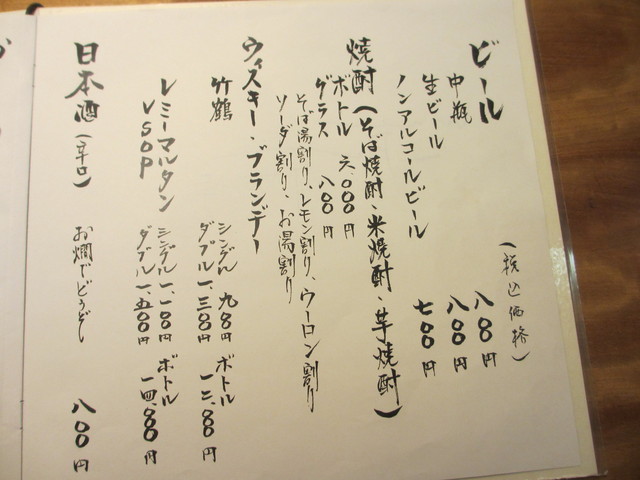 (税込価格)
ビール
中瓶 八〇〇円
生ビール 八〇〇円
ノンアルコールビール 七〇〇円
焼酎(そば焼酎・米焼酎・芋焼酎)
ボトル 六、〇〇〇円
グラス 八〇〇円
そば湯割り、レモン割り、ウーロン割り
ソーダ割り、お湯割り
ウィスキー・ブランデー
竹鶴 シングル 九〇〇円 ボトル
ダブル 一、三〇〇円 一二、〇〇〇円
レミーマルタン シングル 一、一〇〇円 ボトル
VSOP ダブル 一、五〇〇円 一四、〇〇〇円
日本酒(辛口) お燗でどうぞ 八〇〇円